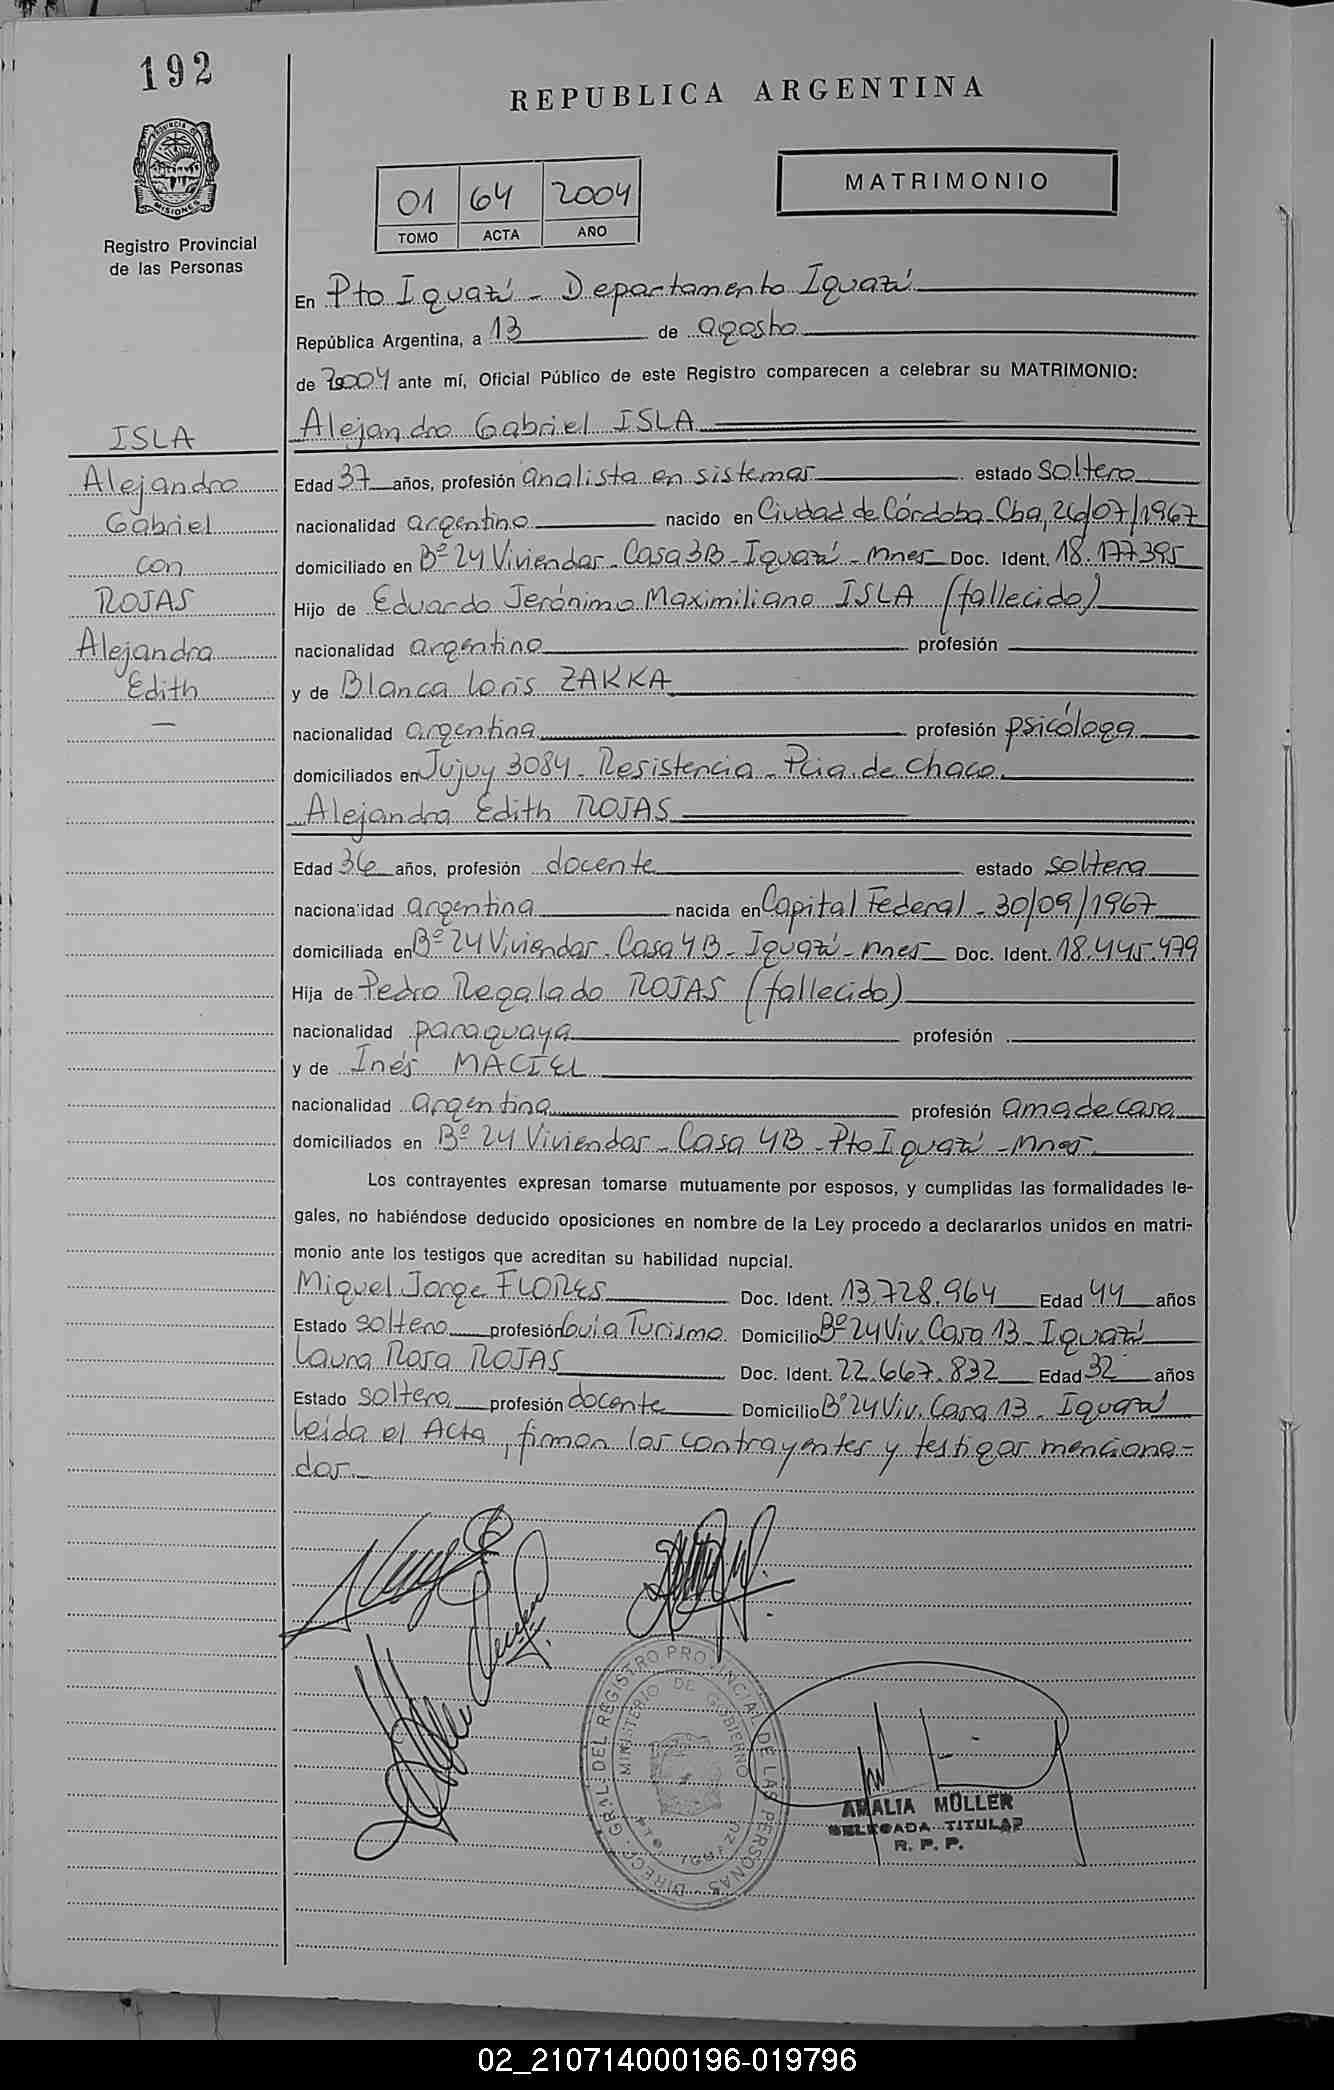 192
REPUBLICA ARGENTINA
PROVINCIA DE MISIONES
Registro Provincial
de las Personas
01 64 2004
TOMO ACTA AÑO
MATRIMONIO
En Pto Iguazú - Departamento Iguazú
República Argentina, a 13 de agosto
de 2004 ante mí, Oficial Público de este Registro comparecen a celebrar su MATRIMONIO:
ISLA
Alejandro
Gabriel
con
ROJAS
Alejandra
Edith
—
Alejandro Gabriel ISLA
Edad 37 años, profesión analista en sistemas estado soltero
nacionalidad argentino nacido en Ciudad de Córdoba-Cba, 26/07/1967
domiciliado en Bº 24 Viviendas - Casa 3B - Iguazú - Mnes Doc. Ident. 18.177.395
Hijo de Eduardo Jerónimo Maximiliano ISLA (fallecido)
nacionalidad argentino profesión
y de Blanca Loris ZAKKA
nacionalidad argentina profesión psicóloga
domiciliados en Jujuy 3084 - Resistencia - Pcia. de Chaco
Alejandra Edith ROJAS
Edad 36 años, profesión docente estado soltera
nacionalidad argentina nacida en Capital Federal - 30/09/1967
domiciliada en Bº 24 Viviendas - Casa 4B - Iguazú - Mnes Doc. Ident. 18.445.479
Hija de Pedro Regalado ROJAS (fallecido)
nacionalidad paraguaya profesión
y de Inés MACIEL
nacionalidad argentina profesión ama de casa
domiciliados en Bº 24 Viviendas - Casa 4B - Pto Iguazú - Mnes
Los contrayentes expresan tomarse mutuamente por esposos, y cumplidas las formalidades le-
gales, no habiéndose deducido oposiciones en nombre de la Ley procedo a declararlos unidos en matri-
monio ante los testigos que acreditan su habilidad nupcial.
Miguel Jorge FLORES Doc. Ident. 13.728.964 Edad 44 años
Estado soltero profesión Guía Turismo Domicilio Bº 24 Viv. Casa 13 - Iguazú
Laura Rosa ROJAS Doc. Ident. 22.667.832 Edad 32 años
Estado soltera profesión docente Domicilio Bº 24 Viv. Casa 13 - Iguazú
Leída el Acta, firman los contrayentes y testigos menciona-
dos.
DIRECC. GRAL. DEL REGISTRO PROVINCIAL DE LAS PERSONAS
MINISTERIO DE GOBIERNO
AMALIA MÜLLER
DELEGADA TITULAR
R. P. P.
02_210714000196-019796